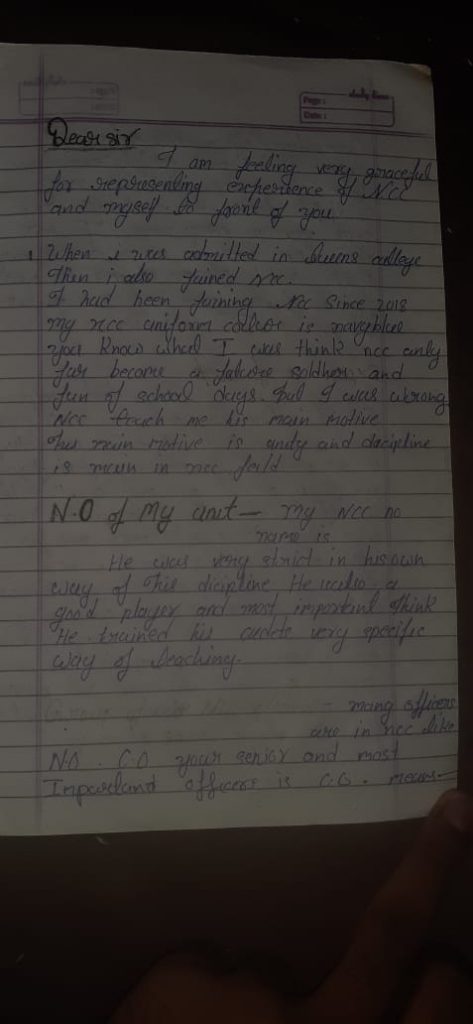 Page :
Date :
Dear sir
I am feeling very graceful
for representing experience of NCC
and myself to front of you
When i was admitted in Queens college
then i also joined Ncc.
I had been juining Ncc Since 2018
my ncc uniform is navyblue
you know what I was think ncc only
for become a soldher and
fun of school days. but I was wrong
Ncc teach me his main motive
his main motive is unity and decipline
is main in ncc feild
N.O of My unit - my NCC no
name is
He was very strict in his own
way of his dicipline He a
good player and most important think
He trained his cadets very specific
way of teaching.
- many officers
are in ncc like
N.O. C.O your senior and most
officers is C.O. means -